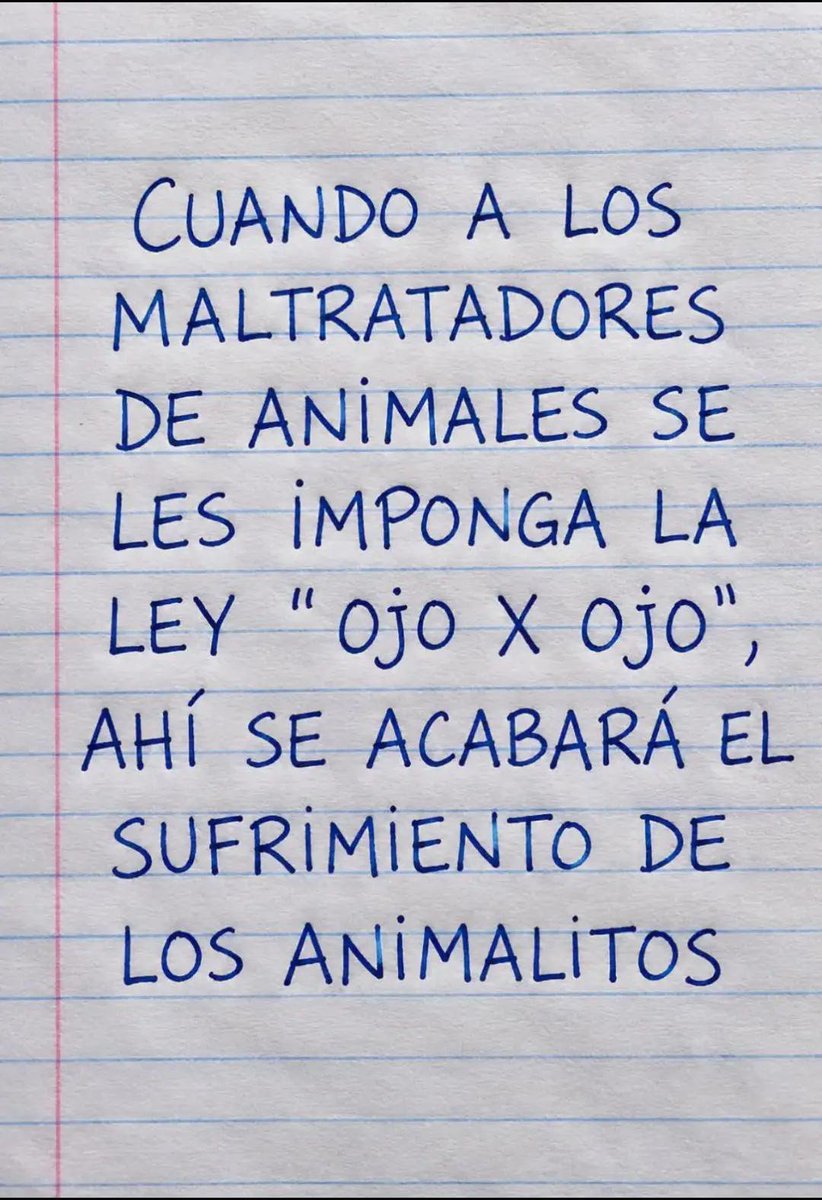 CUANDO A LOS
MALTRATADORES
DE ANiMALES SE
LES iMPONGA LA
LEY "OjO X OjO",
AHÍ SE ACABARÁ EL
SUFRiMiENTO DE
LOS ANiMALiTOS